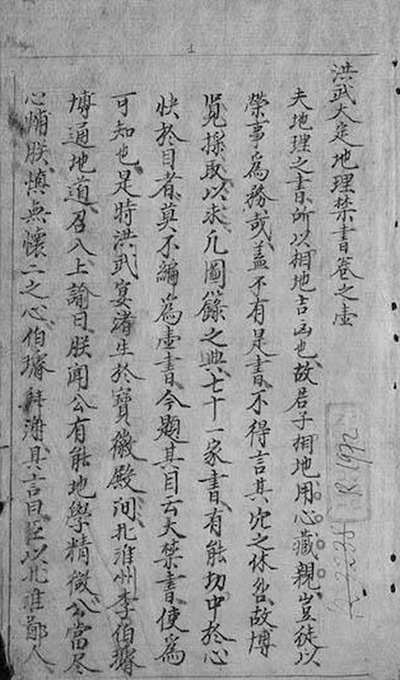 洪武大定地理禁書卷之壺
夫地理之書所以相地吉凶也故君子相地用心藏親豈徒以
榮事為務哉蓋不有是書不得言其穴之休咎故博
覽採取以求凡圖籙之典七十一家書有能切中於心
快於目者莫不編為壺書今題其目云大禁書使為
可知也是時洪武宴渚生於寶徽殿問北淮州李伯璿
博通地道召入上諭曰朕聞公有能地學精微公當尽
心輔朕慎無懷二之心伯璿拜謝其言曰臣以北淮鄙人
R 1692